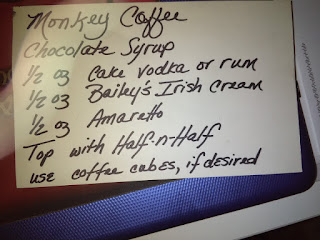 Monkey Coffee
Chocolate Syrup
1/2 oz Cake Vodka or rum
1/2 oz Bailey's Irish Cream
1/2 oz Amaretto
Top with Half-n-Half
use coffee cubes, if desired